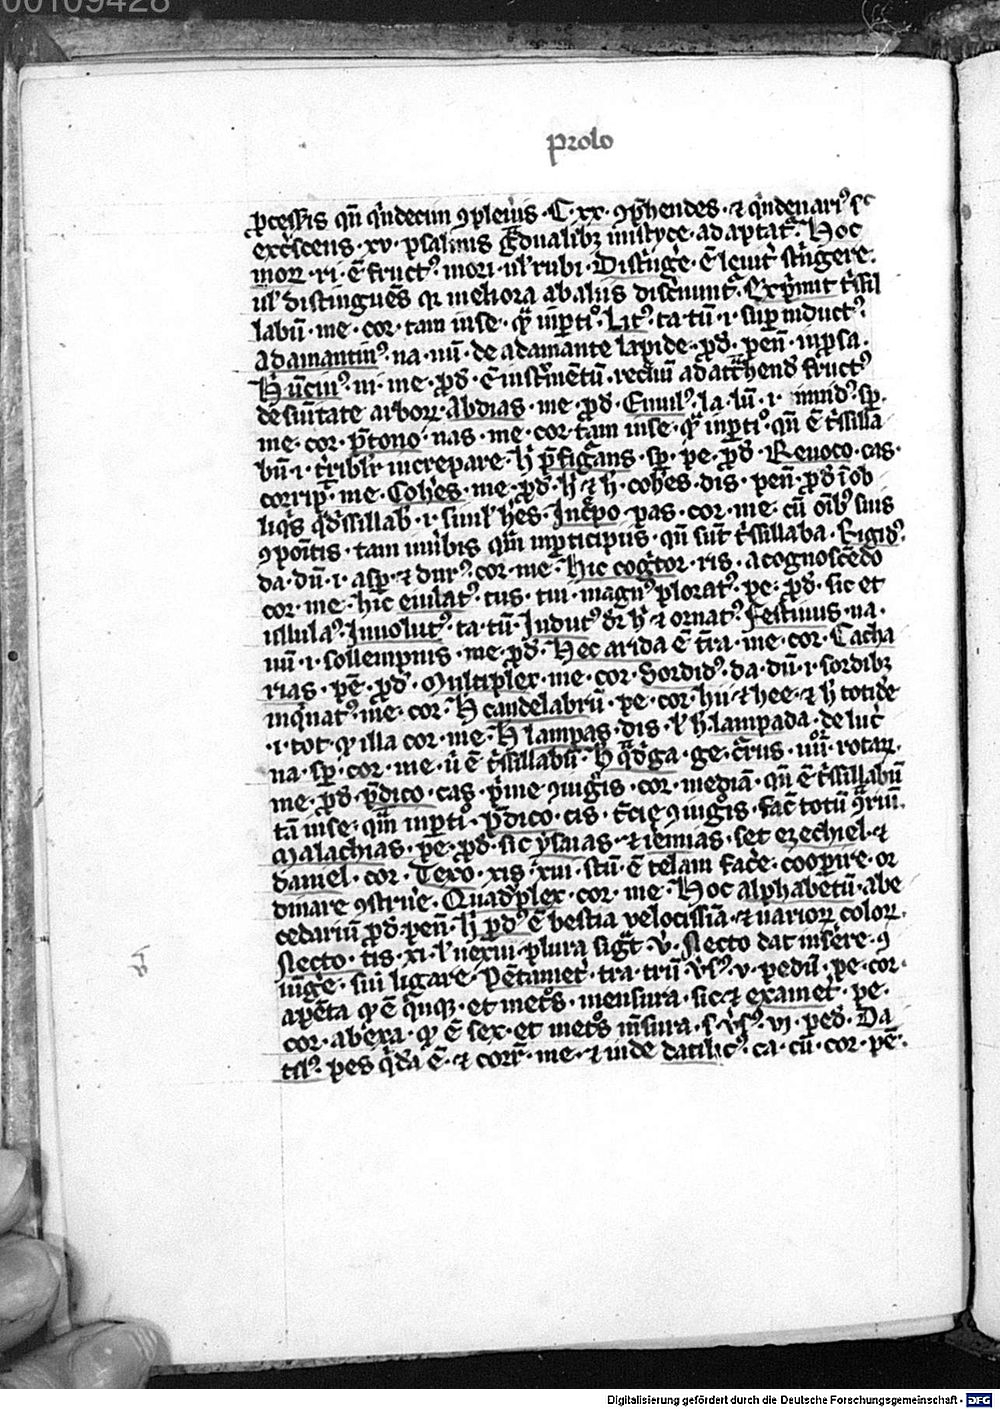 00109428
Prolo
ꝓcessis qn̄ qⁱndecim ꝯpleuis · C · xx · ꝯp̄hendes · ⁊ qⁱndenariꝰ
excr̄scens · xv · psalmis g̃dualibꝫ mistice · adaptat᷑ · Hoc
moꝝ · ri · ē fructꝰ mori · ul᷑ rubi · Distⁱnge᷑ · ē leuit᷑ stⁱngere ·
ul᷑ distinguēs qr meliora ab aliis discernunt᷑ · Exp̄mit tⁱsil
labū · me · cor · tam in se · qᷓ in ꝑtiᵒ · Litꝰ · ta · tū · i · suꝑinductꝰ ·
adamantinꝰ · na · nū · de adamante lapide · ꝓd̄ · pen̄ · in ꝓsa ·
H̄ ūcinꝰ · ni · me · ꝓd̄ · ē instr̄mētū · recᷓuū ad att̄hend̄ fructꝰ
de sum̄itate arboꝝ · Abdias · me · ꝓd̄ · Emulꝰ · la · lū · i · inuidꝰ · sꝑ ·
me · cor · p̄tono · nas · me · cor · tam in se · qᷓ in ꝑtiᵒ · qn̄ ē tⁱsilla
bū · i · t᷑ribil᷑r increpare · h̄ p̄figᷓans · sꝑ · pe · ꝓd̄ · Reuoco · cas ·
corripᷓ · me · Coh̄es · me · ꝓd̄ · h̄ ⁊ h̄ · coh̄es · dis · pen̄ · ꝓd̄ ī ob
liqⁱs qᷓdⁱssillab᷑ · i · simul h̄es · Incr̄po · pas · cor · me · cū oīb̄ꝰ suis
ꝯpoīt̄is · tam in ūbis qᷓm in ꝑticipiis · qn̄ sūt tⁱsillaba · Rigidꝰ ·
da · dū · i · asꝑ · ⁊ durꝰ · cor · me · hic cogⁱtor · ris · a cognoscēdo
cor · me · hic eiulatꝰ · tus · tui · magnꝰ ploratꝰ · pe · ꝓd̄ · sic et
ullulaꝰ · Inuolutꝰ · ta · tū · Indutꝰ dr̄ h̄ ⁊ ornatꝰ · Festiuus · na ·
nū · i · sollempnis · me · ꝓd̄ · Hec arida ē t᷑ra · me · cor · Cacha
rias · pē · ꝓd̄ · Multiplex · me · cor · Sordidꝰ · da · dū · i · sordibꝫ
inqⁱnatꝰ · me · cor · H̄ candelabrū · pe · cor · hii ⁊ hee · ⁊ h̄ totide
· i · tot · ꝙ illa cor · me · H̄ lampas · dis · l᷑ h̄ · lampada · de luc᷑
na · sꝑ · cor · me · ū ē tⁱsillabū · h̄ qᷓdⁱga · ge · c᷑rus · iiiiᵒʳ · rotaꝝ ·
me · ꝓd̄ · p̄dico · cas · pⁱme ꝯiug᷑is · cor · mediā · qn̄ ē tⁱsillabū
tā in se · qᷓm in ꝑtiᵒ · p̄dico · cis · t᷑cie ꝯiugis · fac̄ totū ꝯᷓriū ·
Malachias · pe · ꝓd̄ · sic ysaias · ⁊ ieᷓmias · set ezechiel · ⁊
daniel · cor · Texo · xis · xui · stū · ē telam fac᷑e · cooꝑire · or
dinare ꝯstru᷑e · Quadⁱplex · cor · me · Hoc alphabetū · abe
cedariū ꝓd̄ · pen̄ · h̄ pdꝰ ē bestia velocissīa · ⁊ uarioꝝ coloꝝ ·
Necto · tis · xi · l᷑ nexui · plura sigᷓt · ⱴ · Necto dat inser᷑e · ꝯ
iūg᷑e · siu᷑ ligare · Pētamet᷑ · tra · trū · v᷑sꝰ · v · pedū · pe · cor ·
a pēta ꝙ ē qⁱnqꝫ · et metᵒs · mensura · sic ⁊ examet᷑ · pe ·
cor · ab exa · ꝙ ē sex · et metᵒs m̄sura · s · v᷑sꝰ · vi · ped̄ · Da
tilꝰ · pes qⁱdā ē · ⁊ corr̄ · me · ⁊ inde datilicꝰ · ca · cū · cor · pē ·
Digitalisierung gefördert durch die Deutsche Forschungsgemeinschaft · DFG